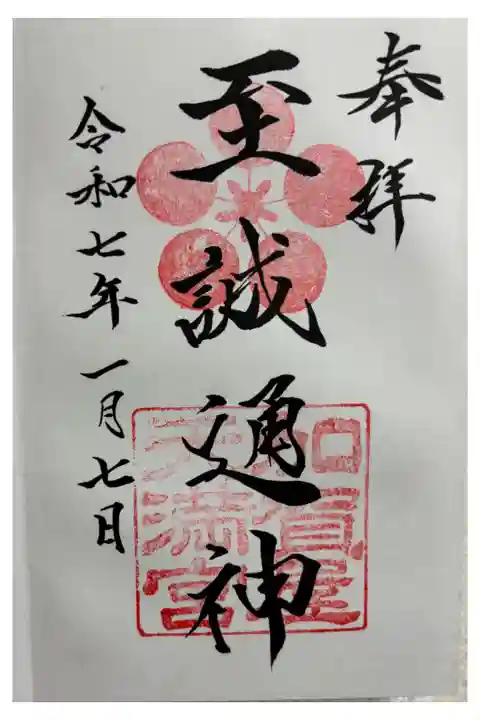 奉拝
至誠通神
加賀宝
天満宮
令和七年一月七日